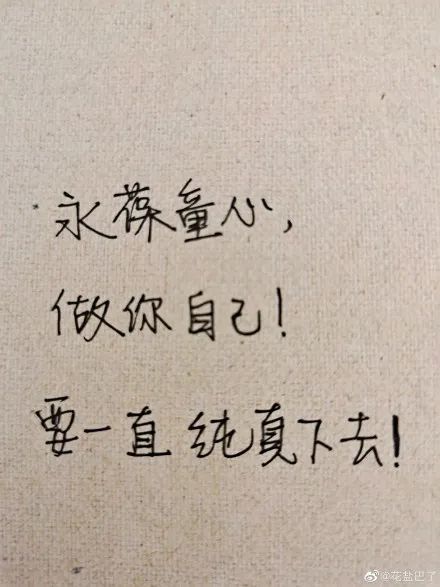 永葆童心，
做你自己！
要一直纯真下去！
@花盐巴了